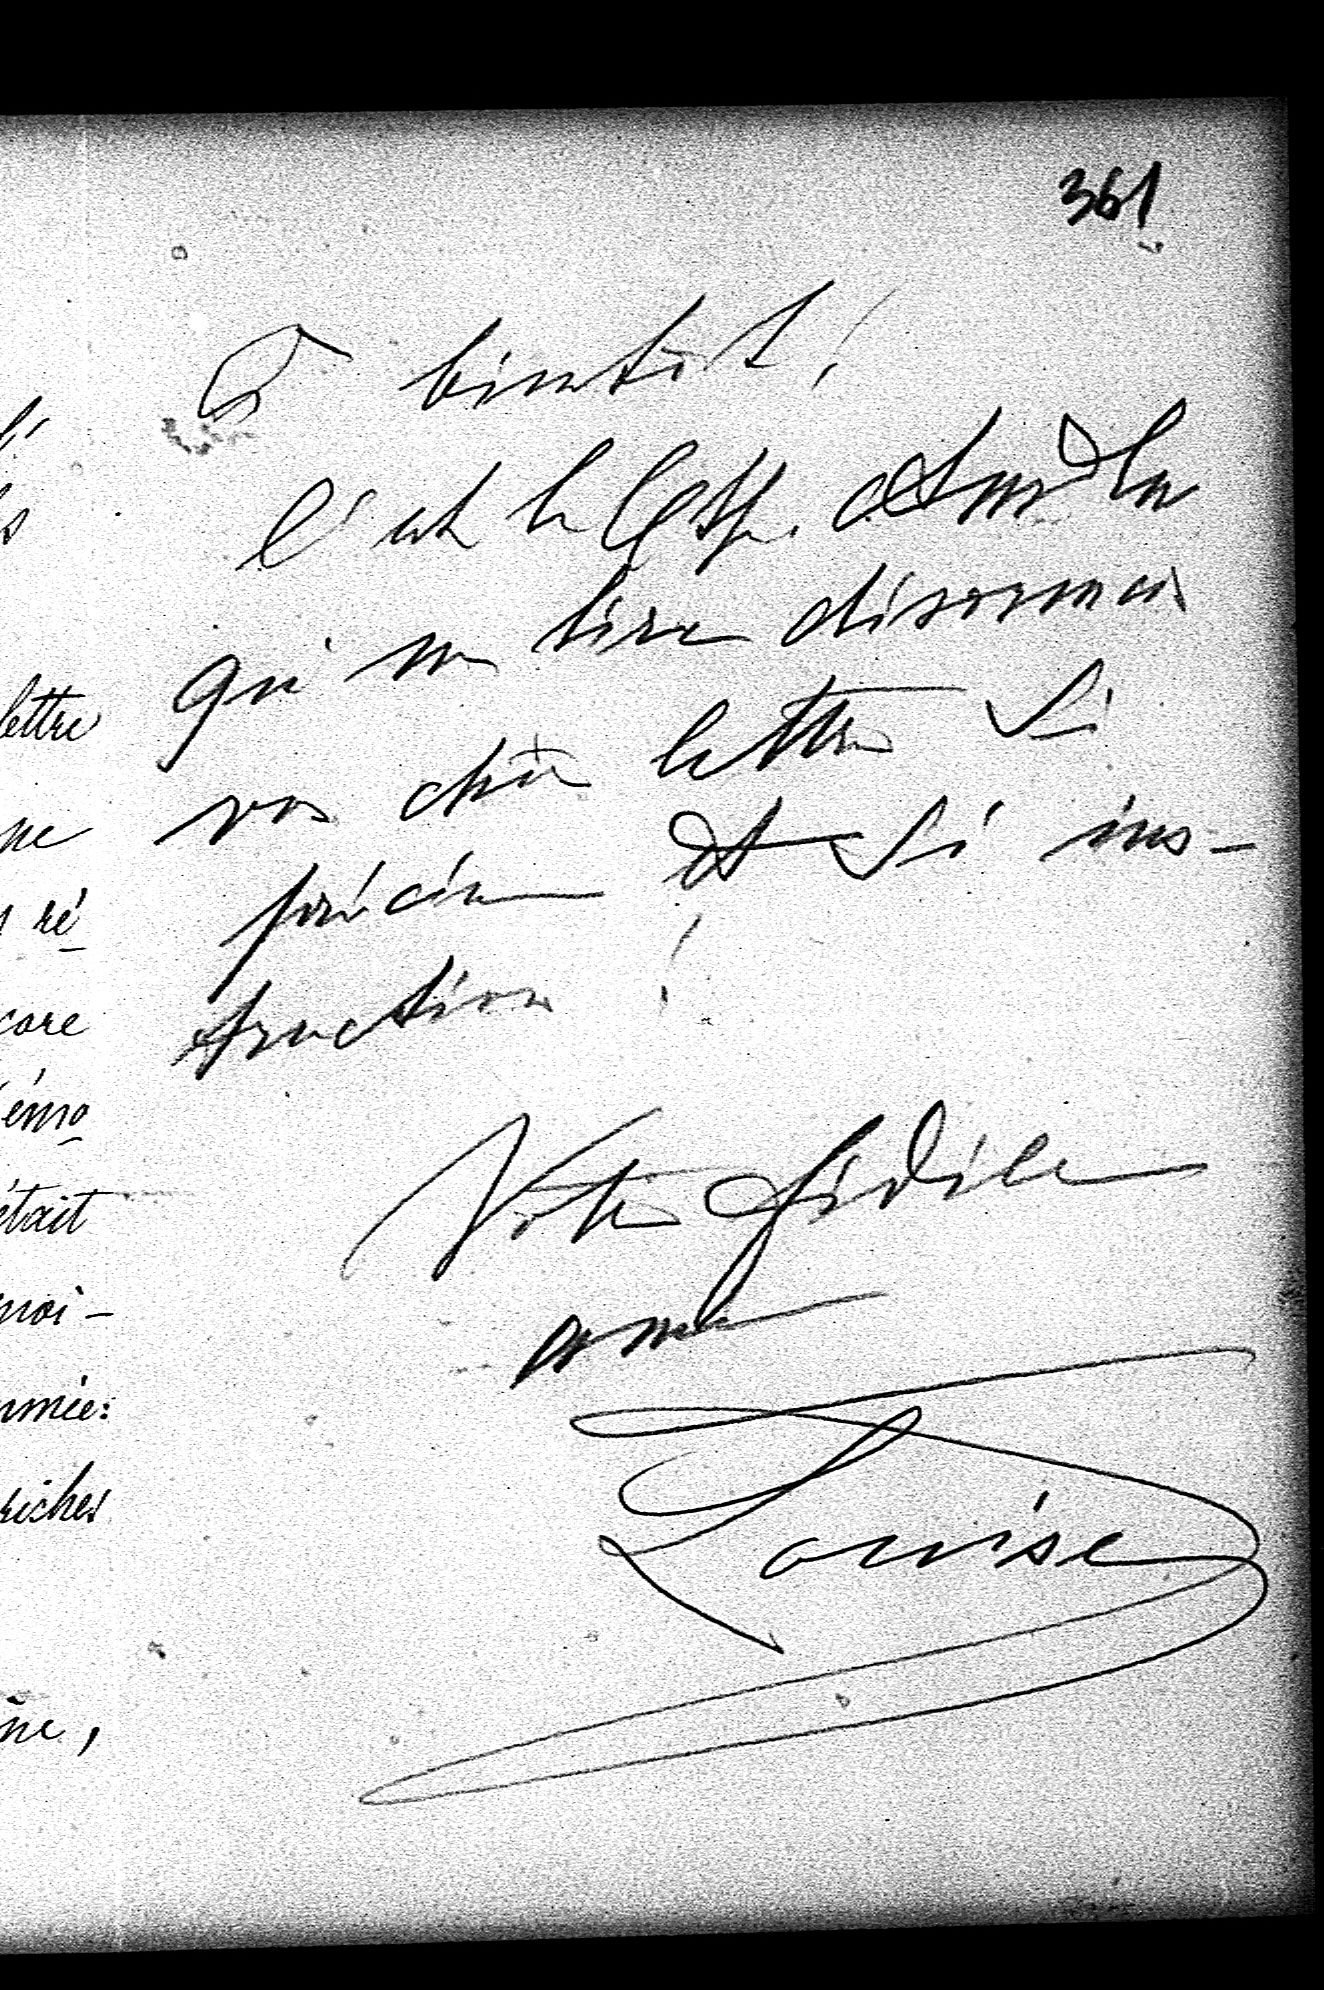 361
A bientôt !
C'est la Ctsse.
qui me lira désormais
vos chères lettres si
précieuses et si ins-
truction !
Votre fidèle
amie
Louise
lettre
ne
ré
core
émo
était
moi -
mie:
riches
ne,